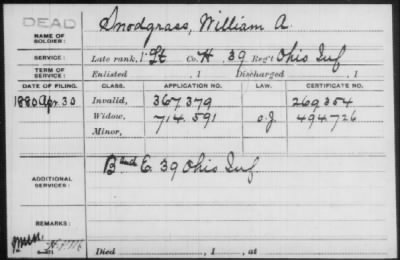 DEAD
NAME OF SOLDIER: Snodgrass, William A.
SERVICE: Late rank, 1 Lt Co. H, 39 Reg't Ohio Inf
TERM OF SERVICE: Enlisted , 1 Discharged , 1
DATE OF FILING. CLASS. APPLICATION NO. LAW. CERTIFICATE NO.
1880 Apr. 30 Invalid, 367379 269354
Widow, 714.591 494726
Minor,
ADDITIONAL SERVICES: B and E. 39 Ohio Inf.
REMARKS:
Died , 1 , at